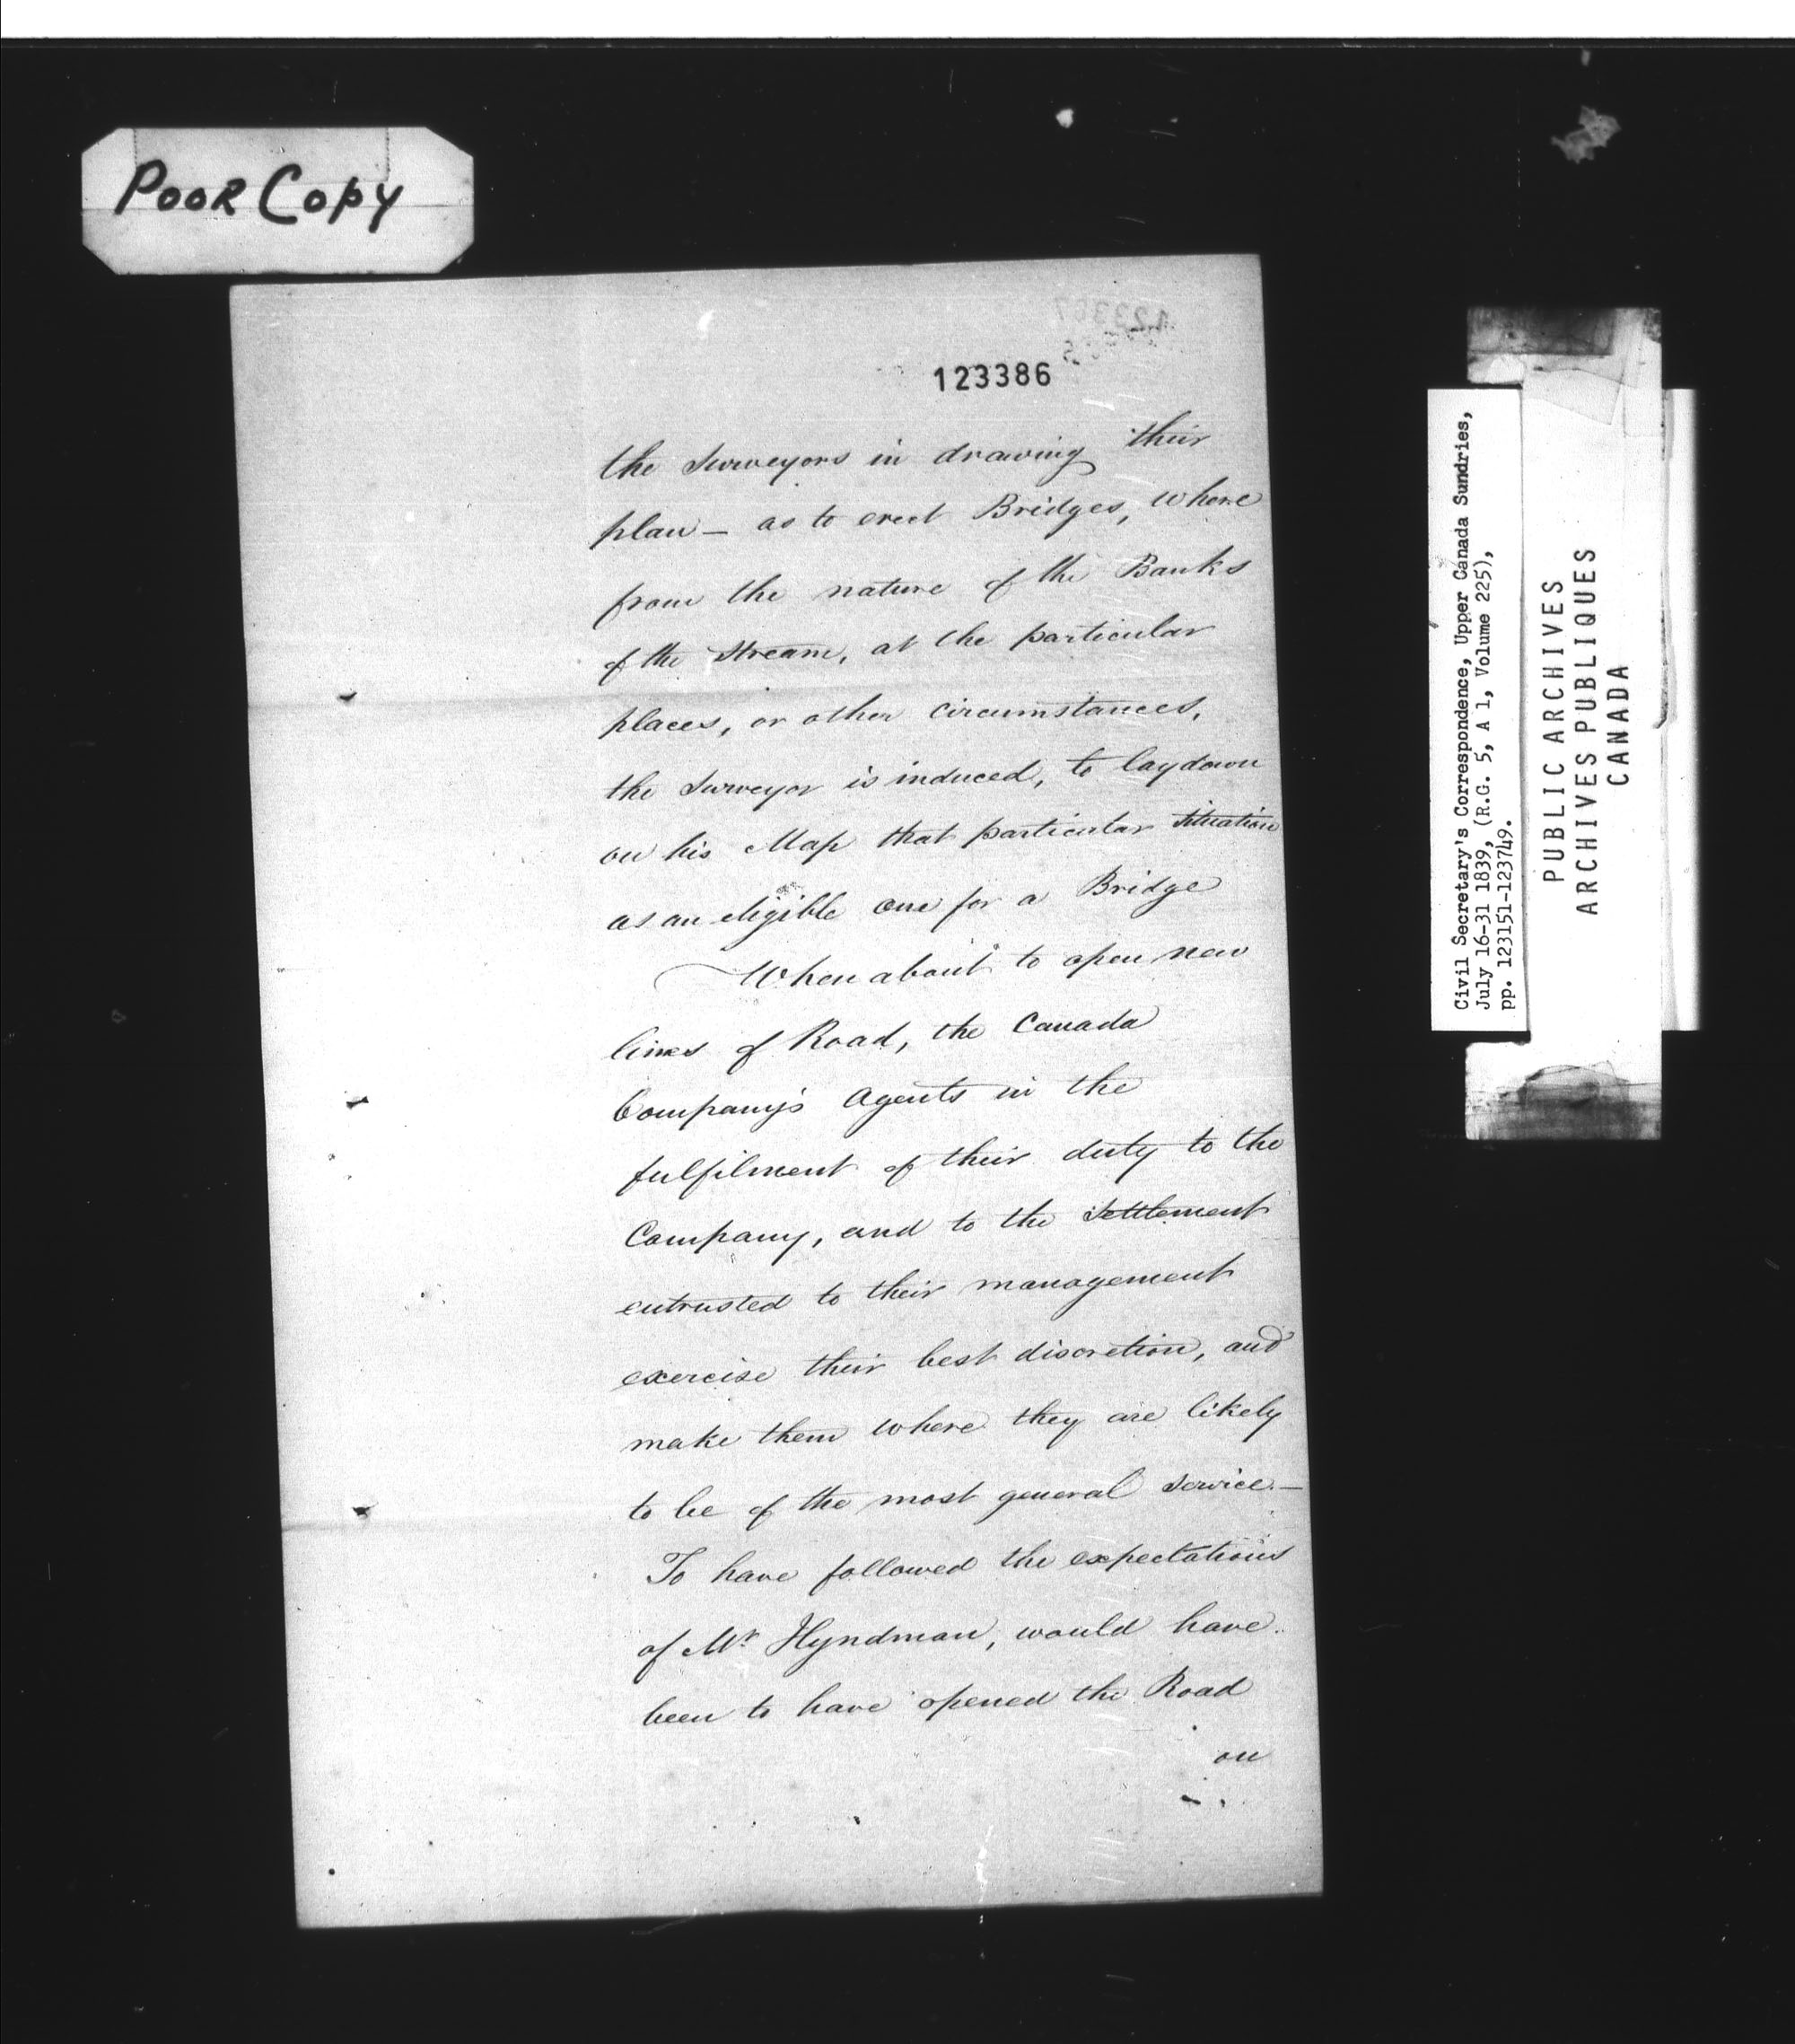 POOR COPY
123387
123386
the Surveyors in drawing their
plan — as to erect Bridges, where
from the nature of the Banks
of the Stream, at the particular
places, or other circumstances,
the Surveyor is induced, to lay down
on his Map that particular situation
as an eligible one for a Bridge
When about to open new
lines of Road, the Canada
Company's Agents in the
fulfilment of their duty to the
Company, and to the Settlement
entrusted to their management
exercise their best discretion, and
make them where they are likely
to be of the most general service. —
To have followed the expectations
of Mr Hyndman, would have
been to have opened the Road
on
Civil Secretary's Correspondence, Upper Canada Sundries,
July 16-31 1839, (R.G. 5, A 1, Volume 225),
pp. 123151-123749.
PUBLIC ARCHIVES
ARCHIVES PUBLIQUES
CANADA